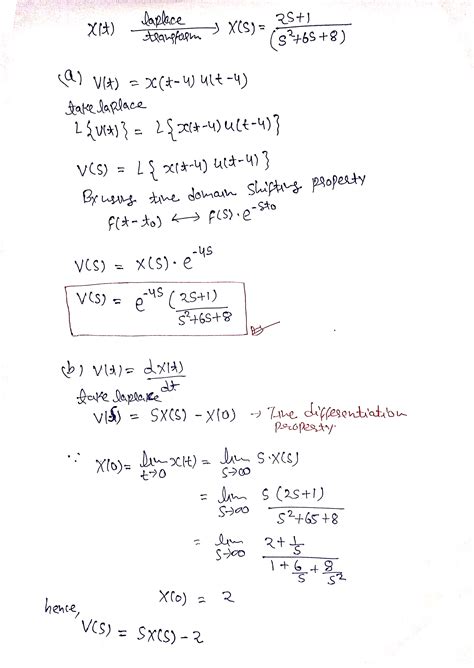 x(t) laplace transform → X(S) = 2S+1 / (S²+6S+8)
(a) V(t) = x(t-4) u(t-4)
take laplace
L{V(t)} = L{x(t-4) u(t-4)}
V(S) = L{ x(t-4) u(t-4)}
By using time domain shifting property
f(t-t₀) ⟷ F(S)·e^-St₀
V(S) = X(S)·e^-4S
V(S) = e^-4S (2S+1) / S²+6S+8
(b) V(t) = dx(t)/dt
take laplace
V(S) = SX(S) - X(0) → Time differentiation
property.
∵ X(0) = lim t→0 x(t) = lim S→∞ S·X(S)
= lim S→∞ S(2S+1) / S²+6S+8
= lim S→∞ 2+1/S / 1+6/S+8/S²
X(0) = 2
hence,
V(S) = SX(S) - 2